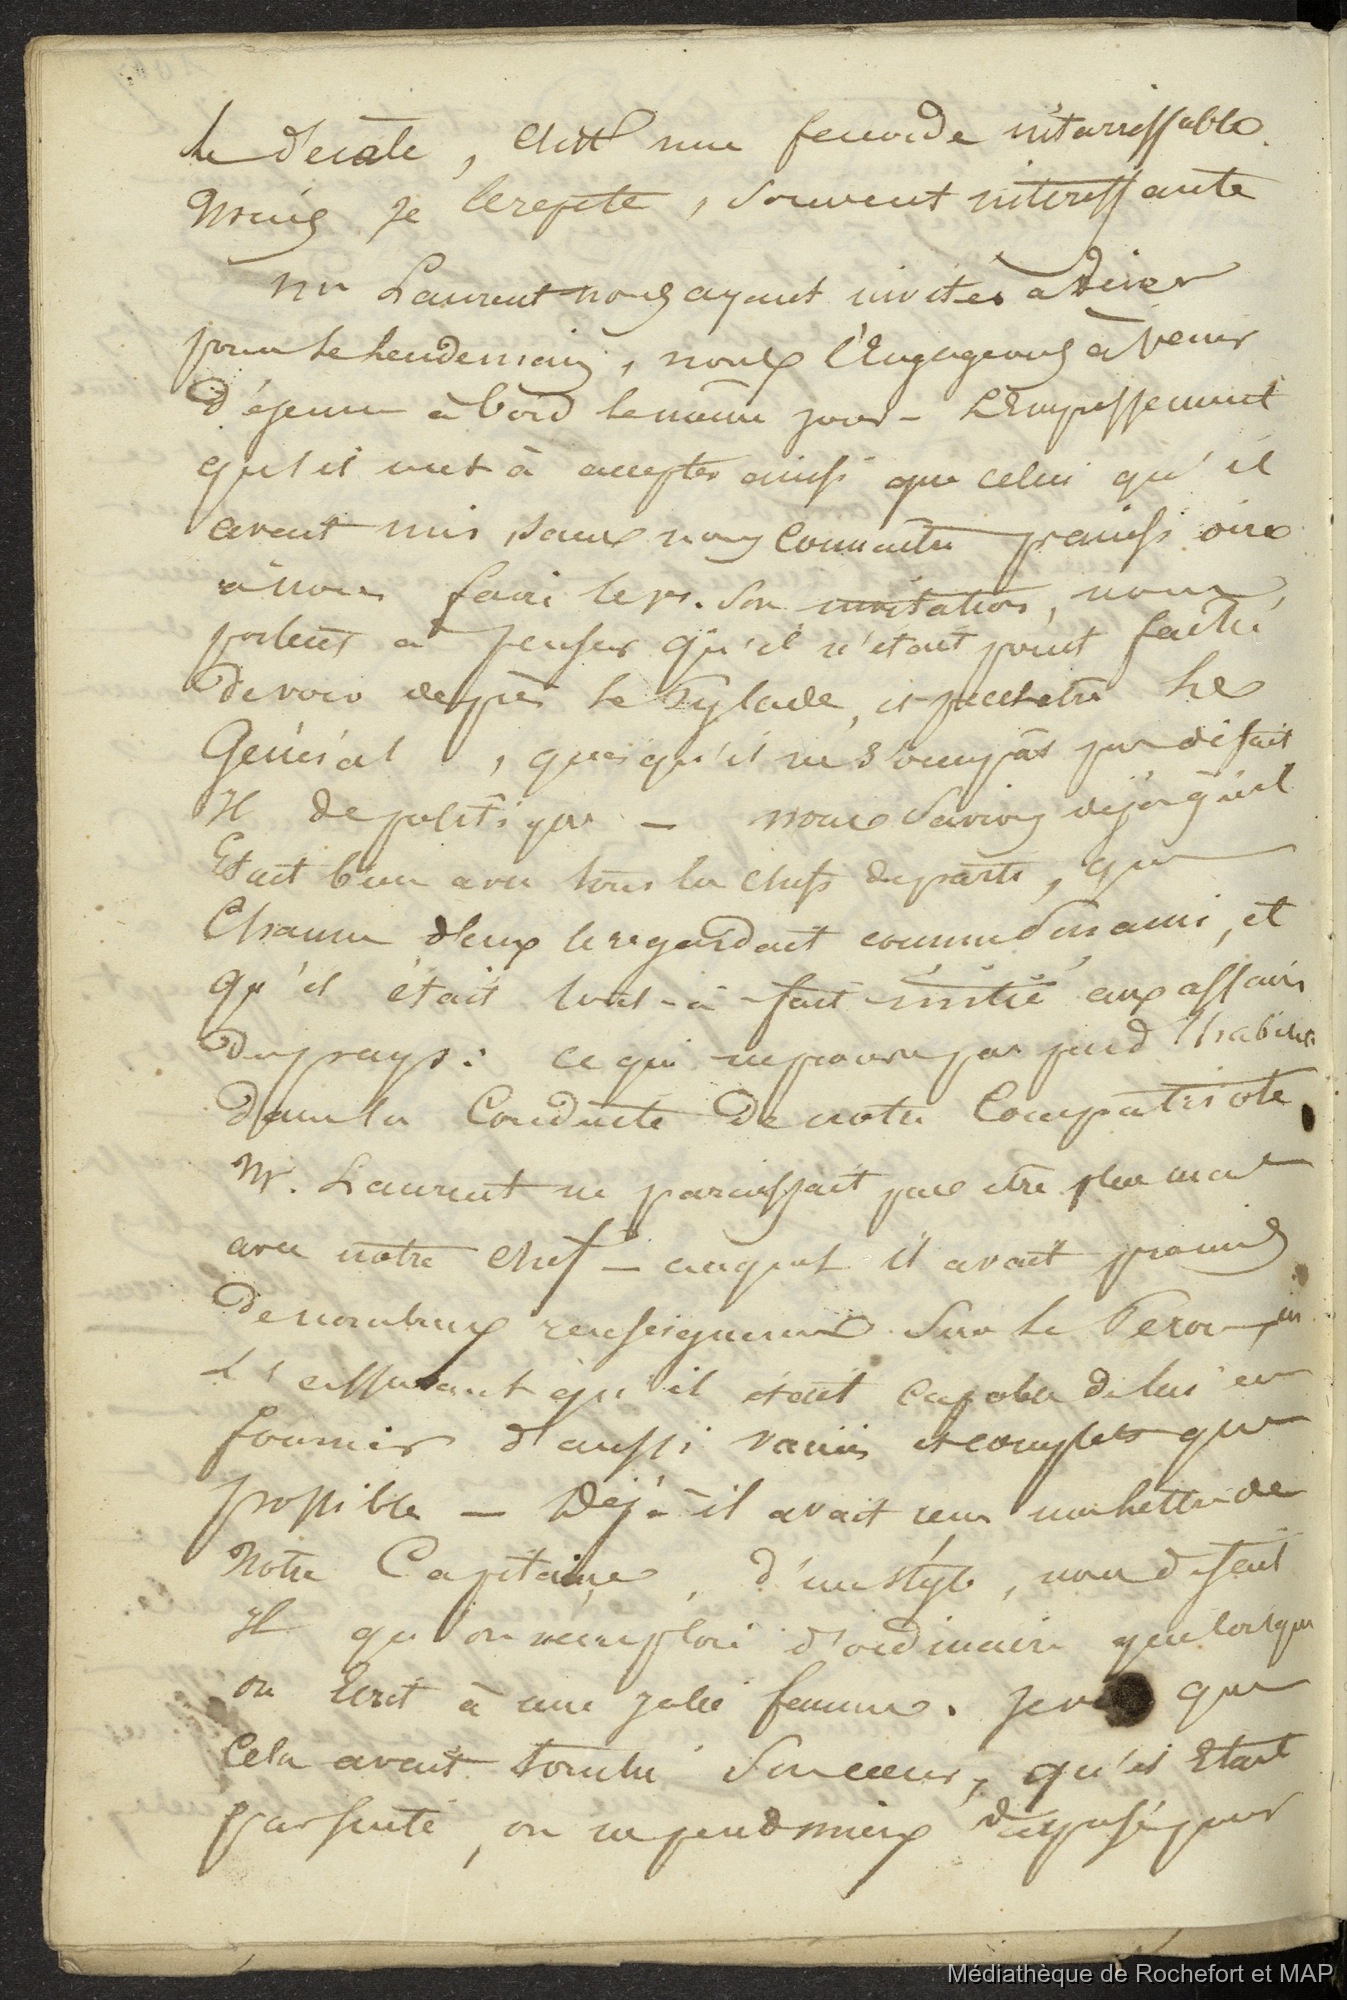 le decale, c'est une faconde intarrissable
mais je le repete, souvent interessante
Mr Laurent nous ayant invités a diner
pour le lendemain, nous l'Engageons à venir
déjeuner à bord le même jour - L'Empressement
qu'il met à accepter ainsi que celui qu'il
avait mis, sans nous connaitre
à nous faire son invitation, nous
portent à penser qu'il n'était point faché
de voir de près le Pylade, et peut etre le
Général, quoiqu'il ne s'occupât pas disait
il de politique — nous savions deja qu'il
Etait bien avec tous les chefs de parti, que
Chacun d'eux le regardait comme son ami, et
qu'il était tout-à-fait initié aux affaires
du pays: ce qui ne prouve pas peu d'habileté
dans la Conduite de notre Compatriote
Mr. Laurent ne paraissait pas etre plus mal
avec notre chef — auquel il avait promis
de nombreux renseignemens sur le Perou, en
l'assurant qu'il était capable de lui en
fournir d'aussi variés et complets que
possible — Déjà il avait reçu une lettre de
Notre Capitaine, d'un style, nous disait
Il qu'on n'emploie d'ordinaire que lorsque
on Ecrit à une jolie femme. Je vis que
Cela avait touché son coeur, qu'il Etait
on ne peut mieux disposé pour
Médiathèque de Rochefort et MAP